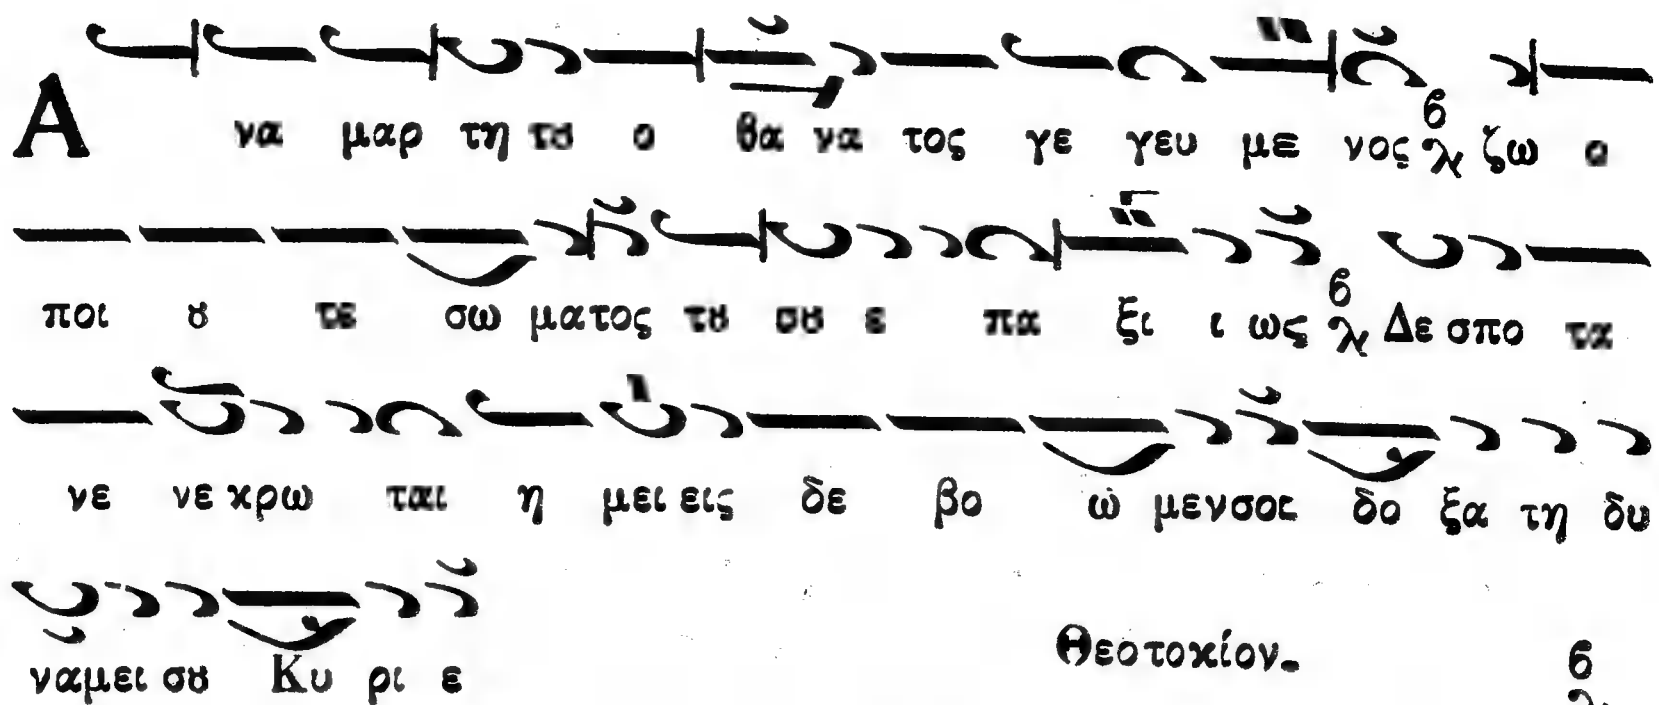 Α να μαρ τη τȣ ο θα να τος γε γευ με νος ϐ λ ζω ο
ποι ȣ τε σω ματος τȣ σȣ ε πα ξι ι ως ϐ λ Δε σπο τα
νε νε κρω ται η μει εις δε βο ω μενσοι δο ξα τη δυ
ναμει σȣ Κυ ρι ε
Θεοτοκίον. ϐ